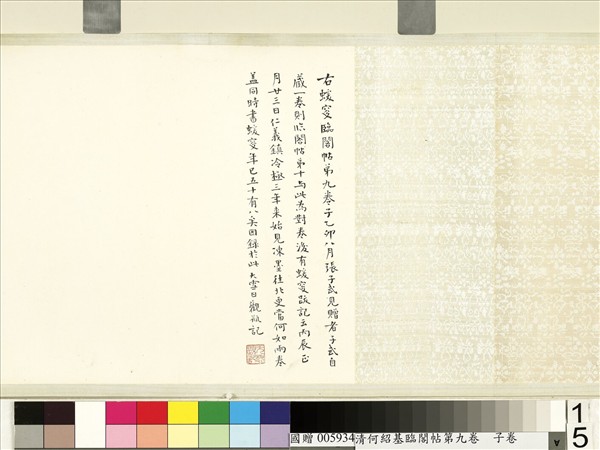 右蝯叟臨閣帖第九卷于乙卯八月張子武見贈者子武自
藏一卷則臨閣帖第十与此為對卷後有蝯叟跋記云丙辰正
月廿三日仁義鎮冷極三年来始見凍墨往北更當何如兩卷
蓋同時書蝯叟年已五十有八矣因錄於此大雪日觀瓶記
國贈 005934清何紹基臨閣帖第九卷　子卷
15